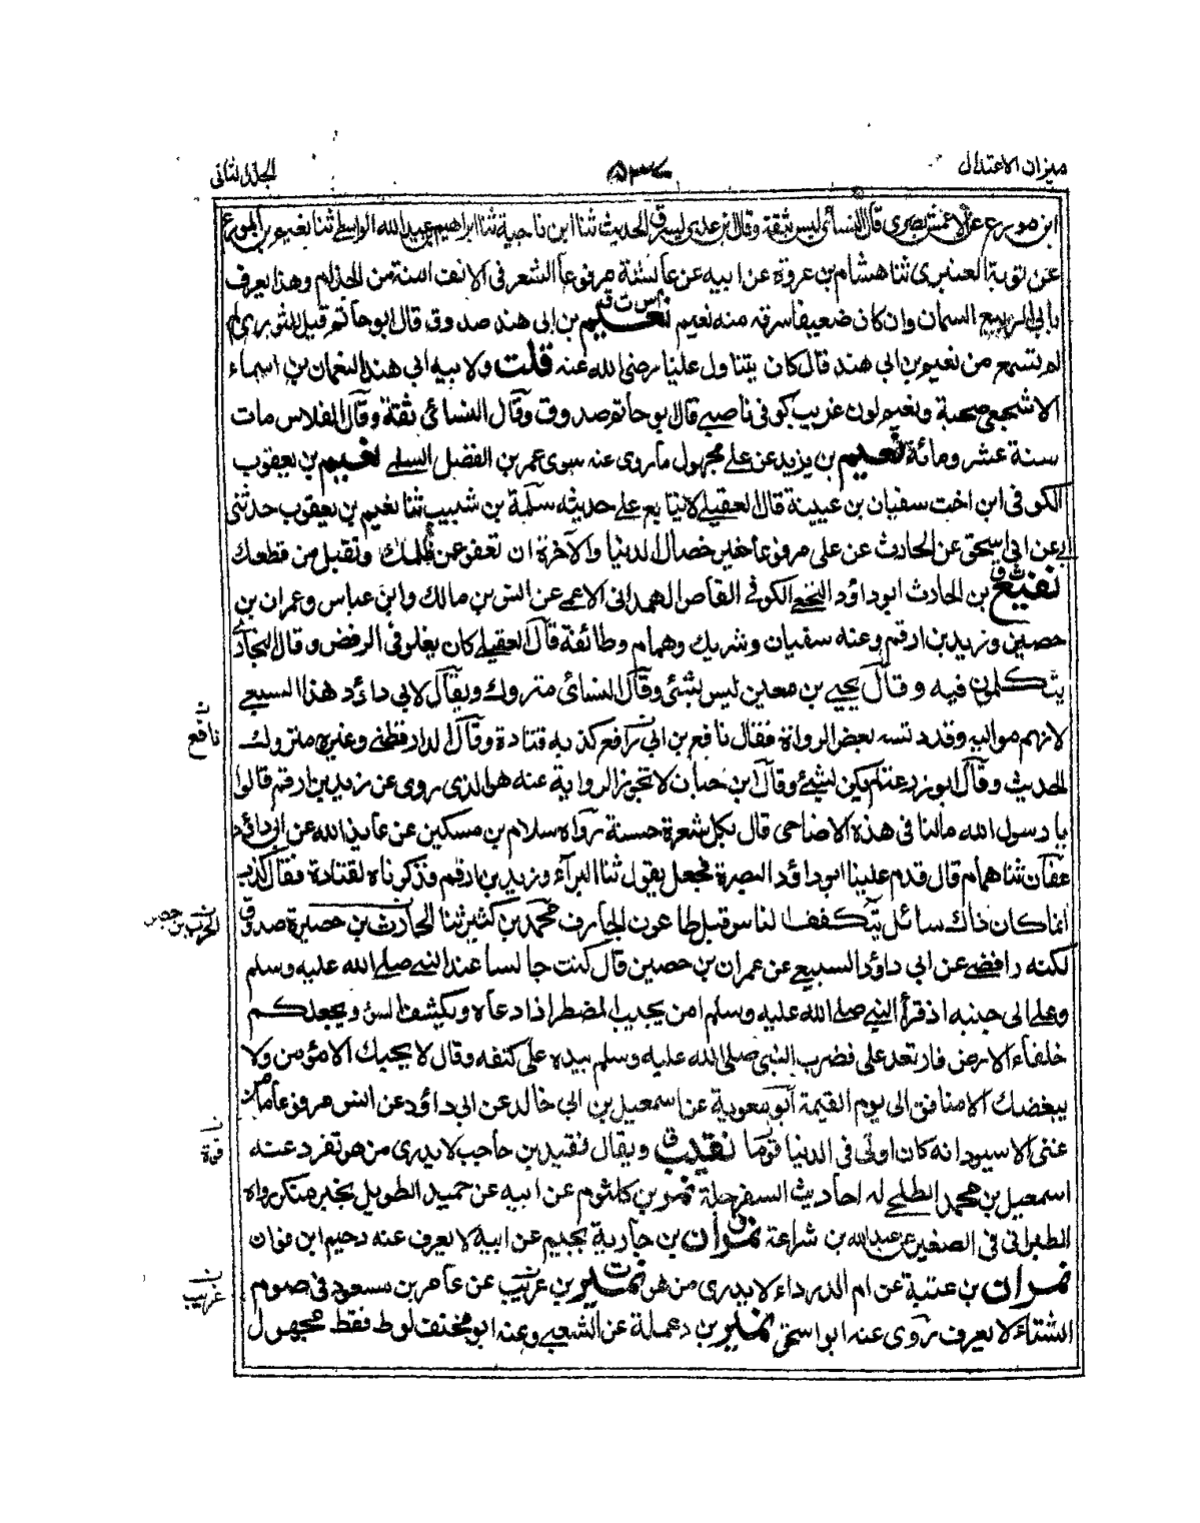 ميزان الاعتدال
٥٣٧
الجلد الثانى
ابن مورع عن الاعمش بصرى قال النسائى ليس بثقة وقال ابن عدى يسرق الحديث ثنا ابن ناجية ثنا ابراهيم بن عبد الله الواسطى ثنا نعيم بن المورع
عن توبة العنبرى ثنا هشام بن عروة عن ابيه عن عائشة مرفوعا الشعر فى الانف امنة من الجذام وهذا يعرف
بابى الربيع السمان وان كان ضعيفا سرقه منه نعيم نعيم بن ابى هند صدوق قال ابو حاتم قيل للثورى
لم تسمع من نعيم بن ابى هند قال كان يتناول عليا رضى الله عنه قلت ولابيه ابى هند النعمان بن اسماء
الاشجعى صحبة ونعيم لون غريب كوفى ناصبى قال ابو حاتم صدوق وقال النسائى ثقة وقال الفلاس مات
سنة عشر ومائة نعيم بن يزيد عن على مجهول ما روى عنه سوى عمر بن الفضل السلمى نعيم بن يعقوب
الكوفى ابن اخت سفيان بن عيينة قال العقيلى لا يتابع على حديثه سلمة بن شبيب ثنا نعيم بن يعقوب حدثنى
ابى عن ابى اسحق عن الحارث عن على مرفوعا خير خصال الدنيا والآخرة ان تعفو عن ظلمك وتقبل من قطعك
نفيع بن الحارث ابو داؤد النخعى الكوفى القاص الهمدانى الاعمى عن انس بن مالك وابن عباس وعمران بن
حصين وزيد بن ارقم وعنه سفيان وشريك وهمام وطائفة قال العقيلى كان يغلو فى الرفض وقال البخارى
يتكلمون فيه وقال يحيى بن معين ليس بشئ وقال النسائى متروك ويقال لابى داؤد هذا السبيعى
لانهم مواليه وقد دلسه بعض الرواة فقال نافع بن ابى رافع كذبه قتادة وقال الدارقطنى وغيره متروك
نافع
الحديث وقال ابو زرعة لم يكن بشئ وقال ابن حبان لا تجوز الرواية عنه هو الذى روى عن زيد بن ارقم قالوا
يا رسول الله مالنا فى هذه الاضاحى قال بكل شعرة حسنة رواه سلام بن مسكين عن عايذ الله عن ابى داؤد
عفان ثنا همام قال قدم علينا ابو داؤد البصرة فجعل يقول ثنا البرآء وزيد بن ارقم فذكرناه لقتادة فقال كذب
انما كان ذاك سائل يتكفف الناس قبل طاعون الجارف محمد بن كثير ثنا الحارث بن حصيرة صدوق
لكنه رافضى عن ابى داؤد السبيعى عن عمران بن حصين قال كنت جالسا عند النبى صلى الله عليه وسلم
وعلى الى جنبه اذ قرأ النبى صلى الله عليه وسلم امن يجيب المضطر اذا دعاه ويكشف السوء ويجعلكم
خلفاء الارض فارتعد على فضرب النبى صلى الله عليه وسلم بيده على كتفه وقال لا يحبك الا مؤمن ولا
يبغضك الا منافق الى يوم القيمة ابو معوية عن اسمعيل بن ابى خالد عن ابى داؤد عن انس مرفوعا ما من
غنى الا سيود انه كان اوتى فى الدنيا قوتا نقيد ويقال نقيد بن حاجب لا يدرى من هو تفرد عنه
اسمعيل بن محمد الطلحى له احاديث السفرجلة نمر بن كلثوم عن ابيه عن حميد الطويل بخبر منكر رواه
الطبرانى فى الصغير عن عبد الله بن شراعة نمران بن جارية بجيم عن ابيه لا يعرف عنه دهيم ابن قران
نمران بن عتبة عن ام الدرداء لا يدرى من هو نمير بن عريب عن عامر بن مسعود فى صوم
غريب
الشتاء لا يعرف روى عنه ابو اسحق نمير بن دعملة عن الشعبى وعنه ابو مخنف لوط فقط مجهول